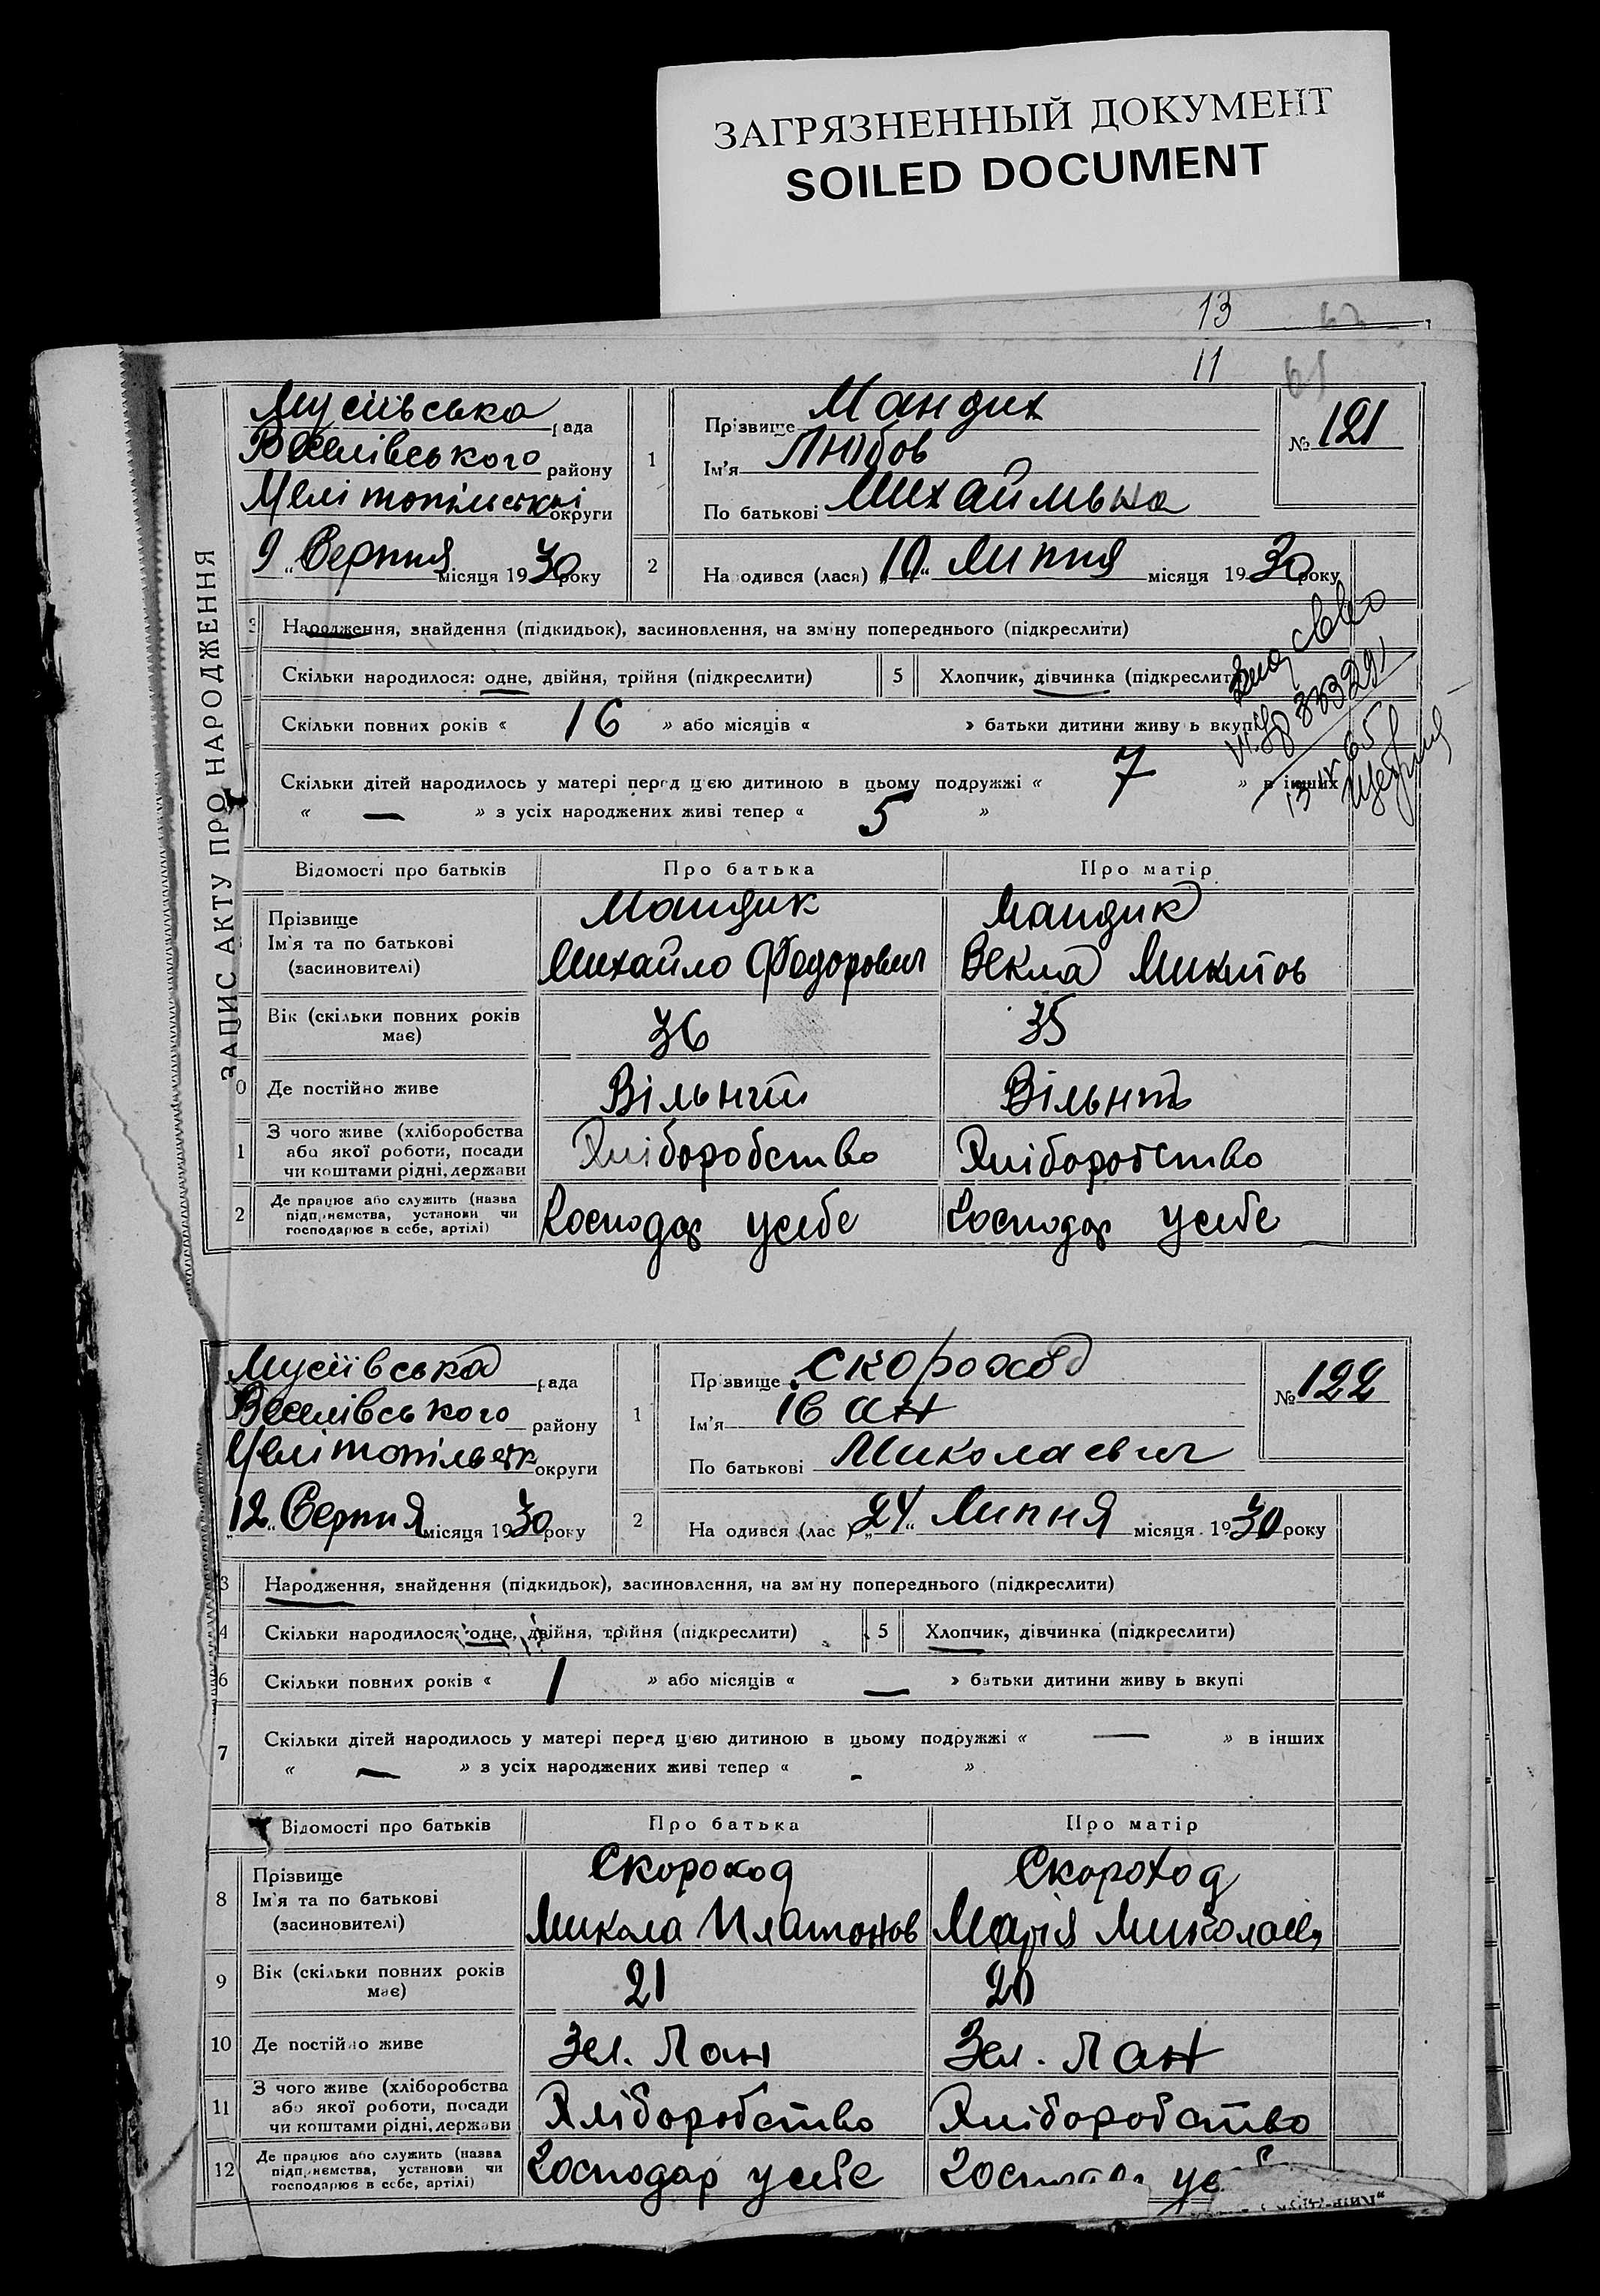 ЗАГРЯЗНЕННЫЙ ДОКУМЕНТ
SOILED DOCUMENT
13
11
ЗАПИС АКТУ ПРО НАРОДЖЕННЯ
Мусіївська рада
Веселівського району
Мелітопільські округи
9 „ Серпня місяця 1930 року
1
Прізвище Мандих
Ім'я Любов
По батькові Михайльна
№ 121
2
На одився (лася) „10“ Липня місяця 1930 року
3 Народження, знайдення (підкидьок), засиновлення, на зміну попереднього (підкреслити)
Скільки народилося: одне, двійня, трійня (підкреслити) 5 Хлопчик, дівчинка (підкреслит
Скільки повних років « 16 » або місяців « » батьки дитини живу ь вкупі
Скільки дітей народилось у матері перед цією дитиною в цьому подружжі « 7 » в інших
« — » з усіх народжених живі тепер « 5 »
Відомості про батьків Про батька Про матір
Прізвище Мандик Мандик
Ім'я та по батькові
(засиновителі) Михайло Федорович Векла Микитов
Вік (скільки повних років
має) 36 35
0 Де постійно живе Вільний Вільнть
1 З чого живе (хліборобства
або якої роботи, посади
чи коштами рідні, держави Хліборобство Хліборобство
2 Де працює або служить (назва
підприємства, установи чи
господарює в себе, артілі) Господар усебе Господар усебе
Мусіївська рада
Веселівського району
Мелітопільськ округи
„12„ Серпня місяця 1930 року
1
Прізвище Скороход
Ім'я Іван
По батькові Миколаевич
№ 122
2
На одився (лас ) „24“ Липня місяця 1930 року
3 Народження, знайдення (підкидьок), засиновлення, на зм ну попереднього (підкреслити)
4 Скільки народилося: одне, двійня, трійня (підкреслити) 5 Хлопчик, дівчинка (підкреслити)
6 Скільки повних років « 1 » або місяців « — » батьки дитини живу ь вкупі
7 Скільки дітей народилось у матері перед цією дитиною в цьому подружжі « — » в інших
« — » з усіх народжених живі тепер « - »
Відомості про батьків Про батька Про матір
Прізвище Скороход Скороход
8 Ім'я та по батькові
(засиновителі) Микола Платонов Марія Миколаєв
9 Вік (скільки повних років
має) 21 20
10 Де постійно живе Зел. Лан Зел. Лан
11 З чого живе (хліборобства
або якої роботи, посади
чи коштами рідні, держави Хліборобство Хліборобство
12 Де працює або служить (назва
підприємства, установи чи
господарює в себе, артілі) Господар усебе Господар